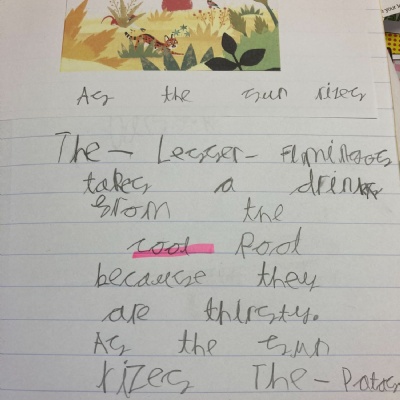 As the sun rizes
The - Lesser - Flmingos
takes a drink
from the
cool Pool
because they
are thirsty.
As the sun
rizes The -